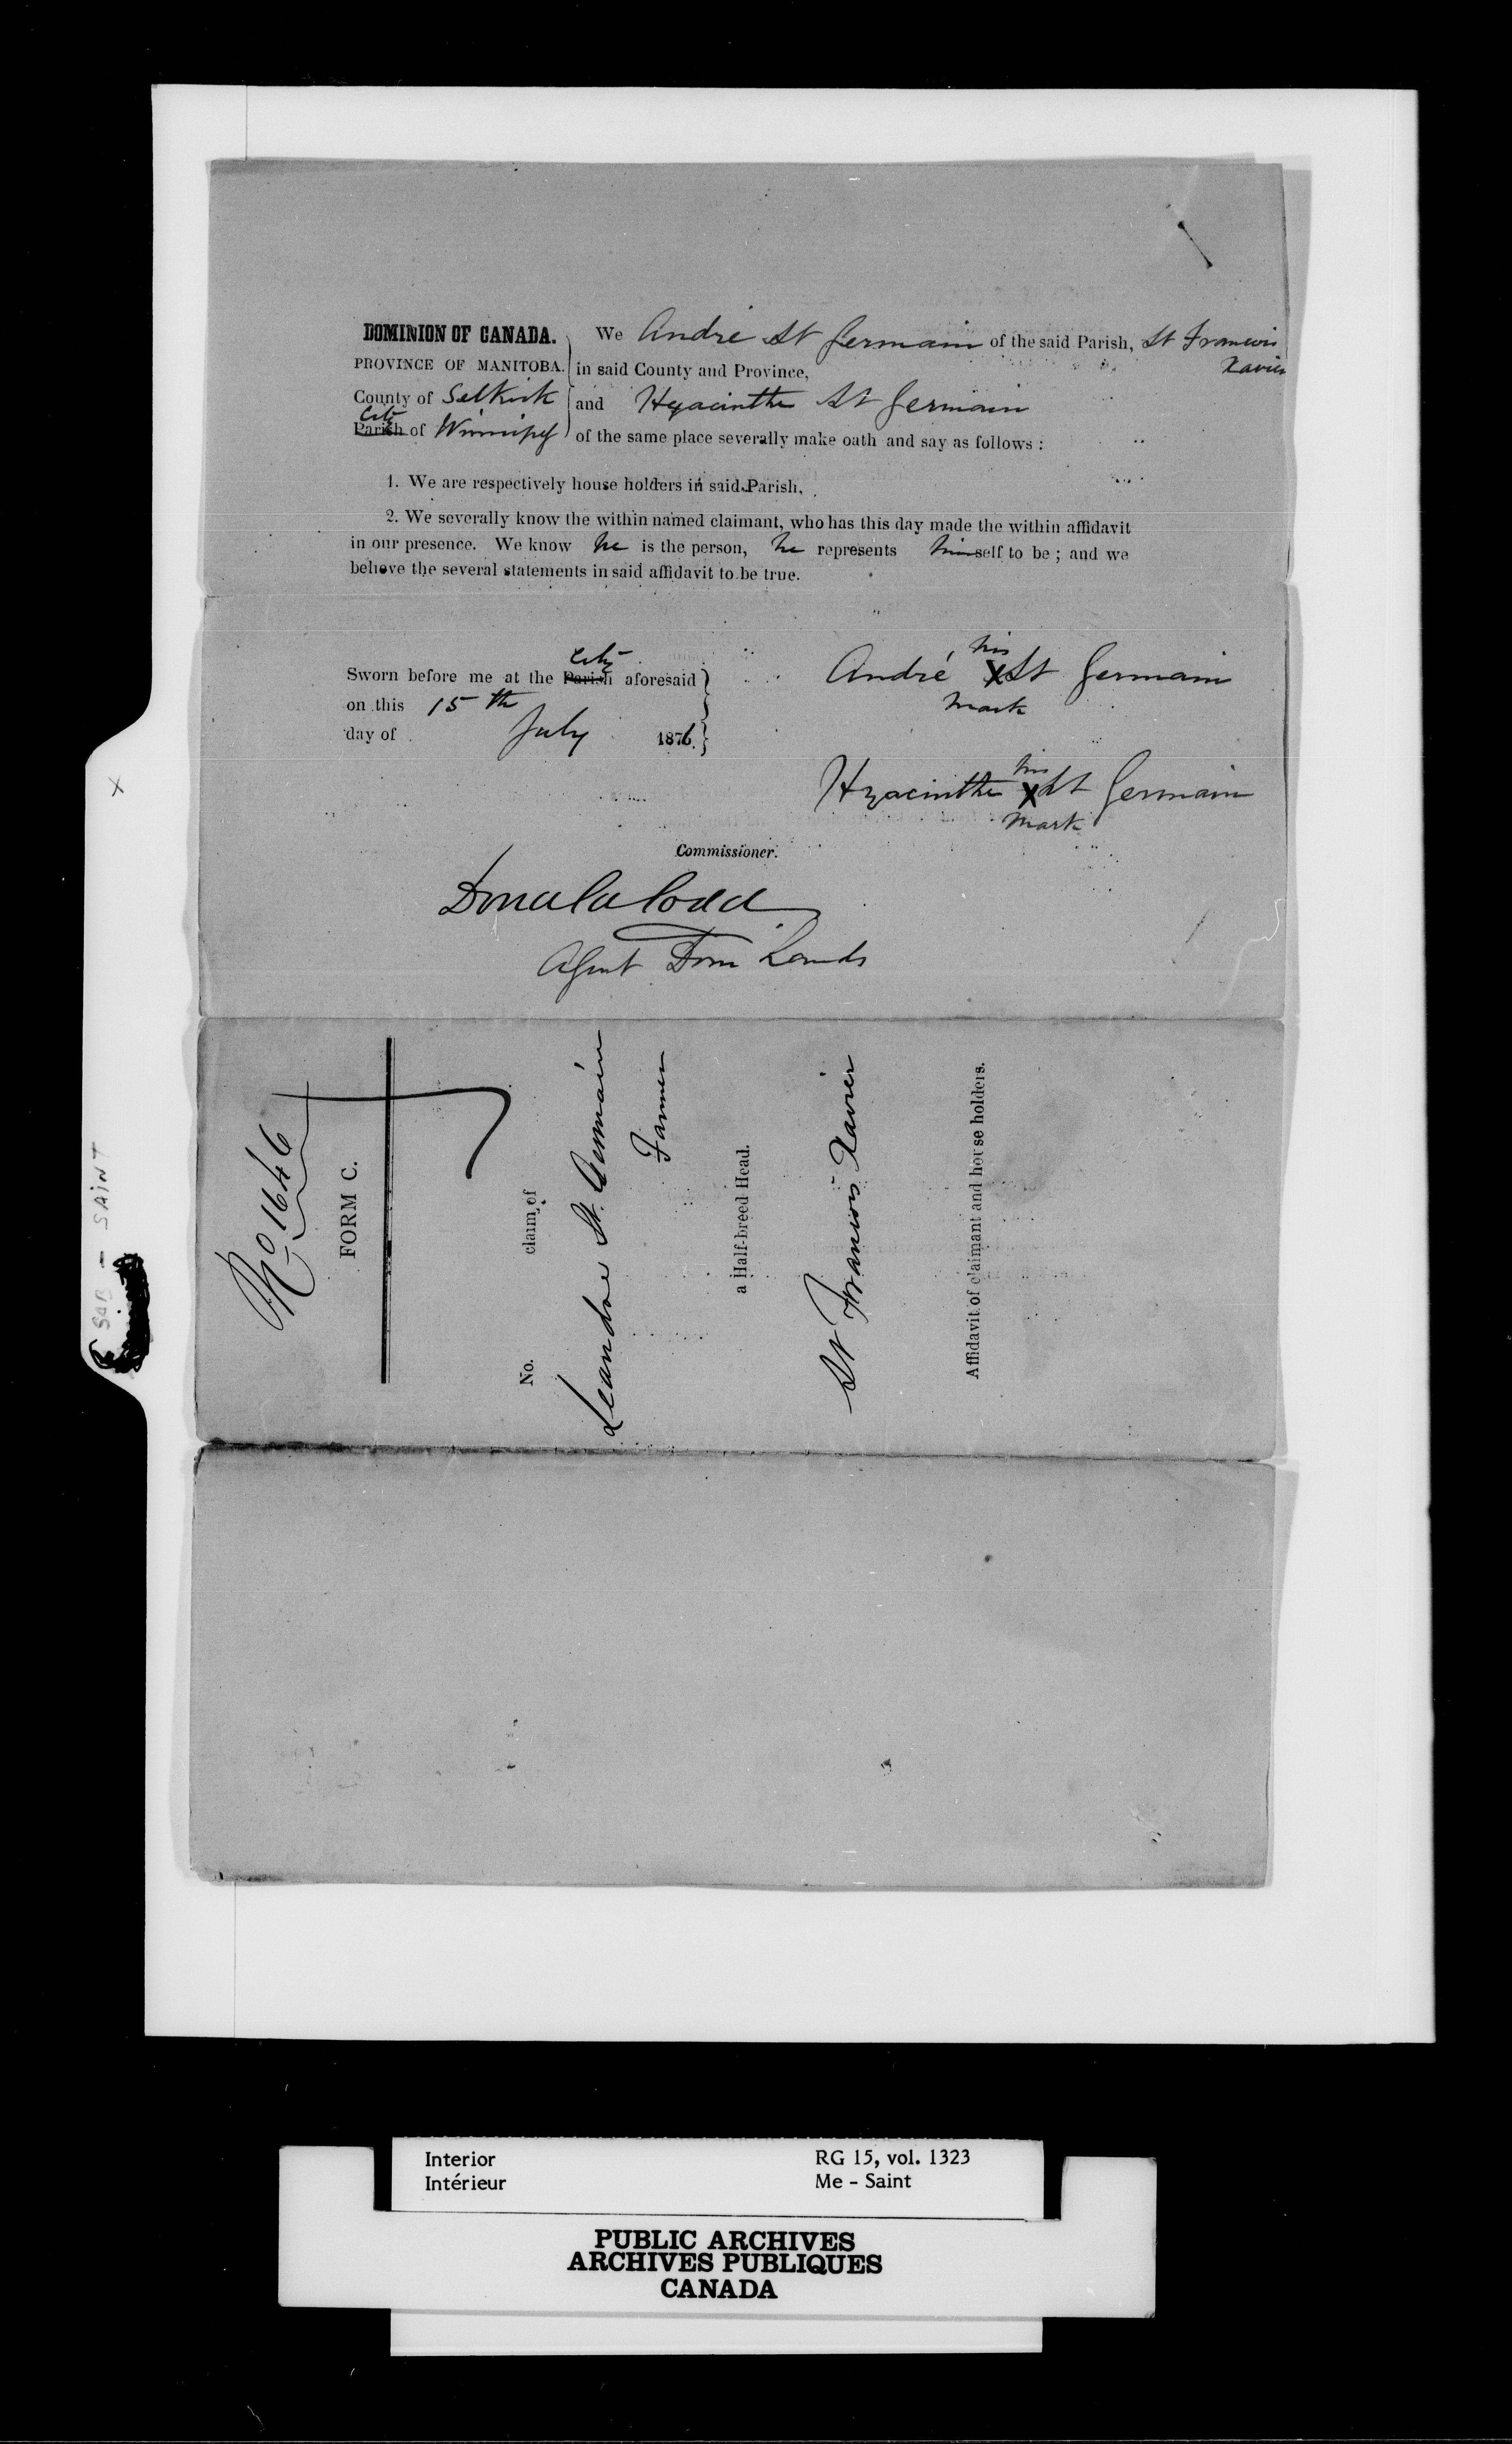 DOMINION OF CANADA. We André St Germain of the said Parish, St Francois Xavier
PROVINCE OF MANITOBA. in said County and Province,
County of Selkirk and Hyacinthe St Germain
City
Parish of Winnipeg of the same place severally make oath and say as follows :
1. We are respectively house holders in said Parish,
2. We severally know the within named claimant, who has this day made the within affidavit
in our presence. We know he is the person, he represents himself to be ; and we
believe the several statements in said affidavit to be true.
City
Sworn before me at the Parish aforesaid
on this 15th
day of July 1876.
his
André X St Germain
mark
his
Hyacinthe X St Germain
mark
Commissioner.
Donald Codd
Agent Dom Lands
No 1646
FORM C.
No. claim of
Leandre St. Germain
Farmer
a Half-breed Head.
St Francois Xavier
Affidavit of claimant and house holders.
X
SAB - SAINT
Interior
Intérieur
RG 15, vol. 1323
Me - Saint
PUBLIC ARCHIVES
ARCHIVES PUBLIQUES
CANADA